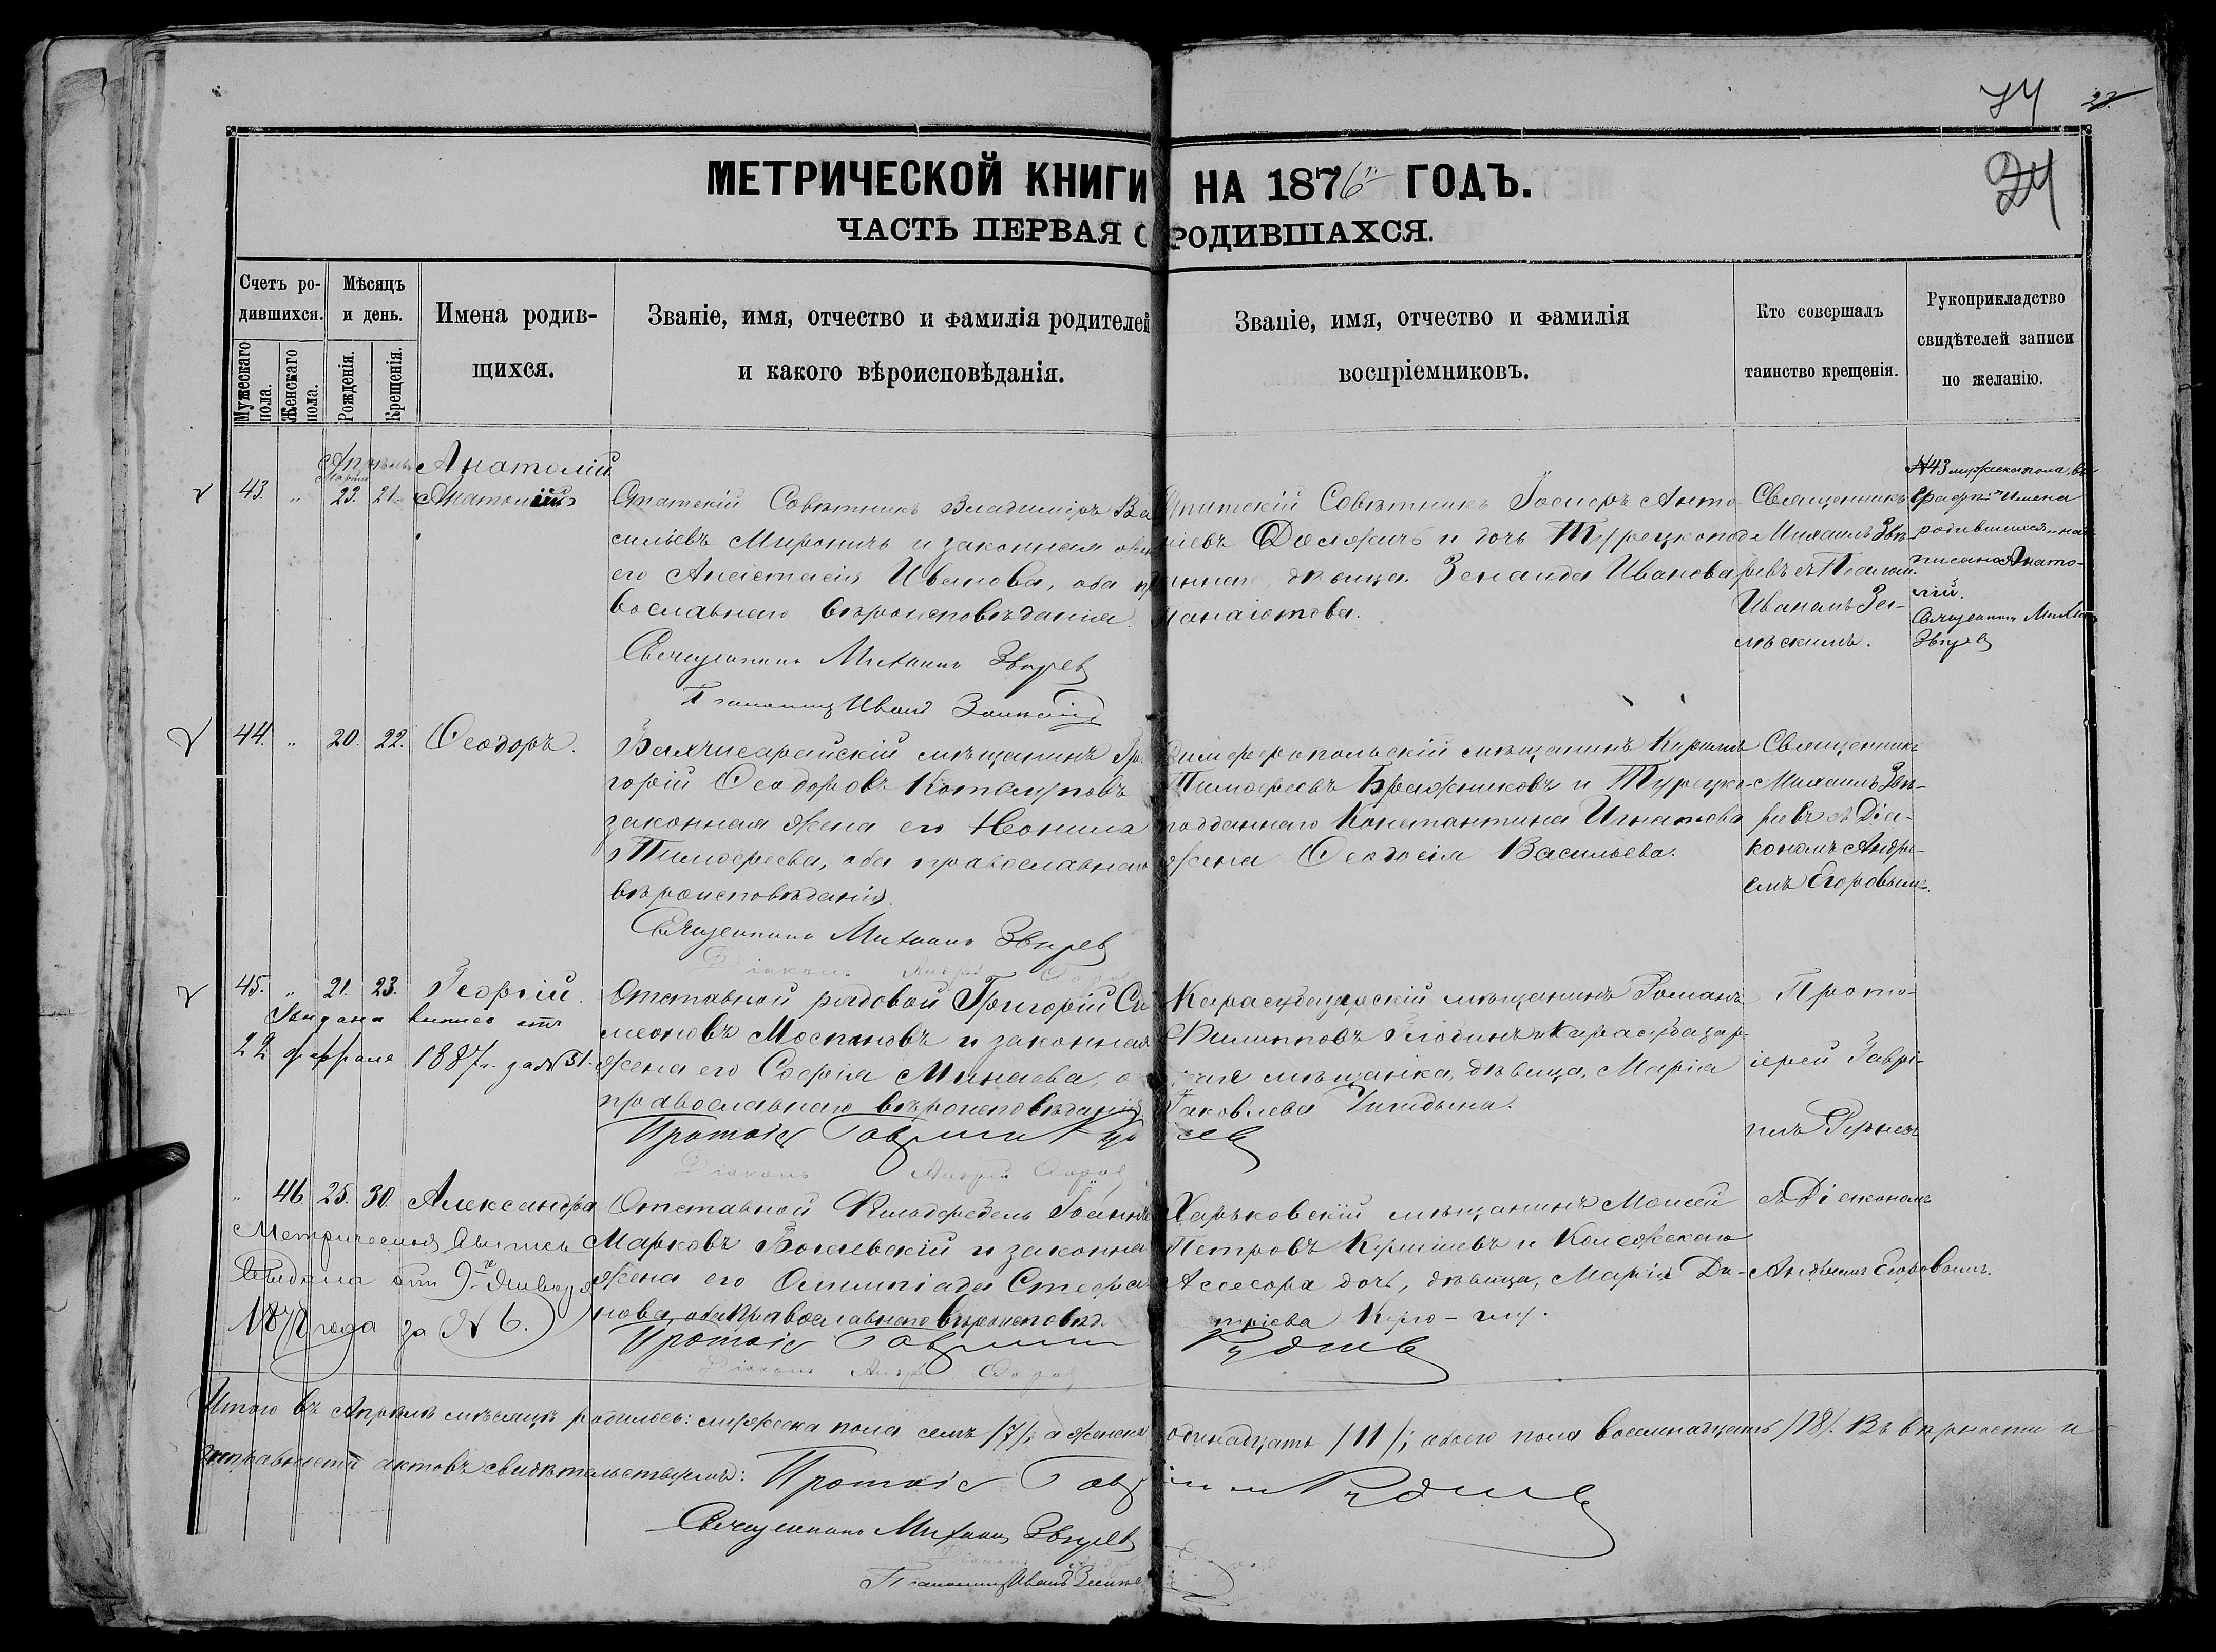 74 23.
24
МЕТРИЧЕСКОЙ КНИГИ НА 1876й ГОДЪ.
ЧАСТЬ ПЕРВАЯ О РОДИВШАХСЯ.
Счетъ ро-
дившихся.
Мужескаго пола.
Женскаго пола.
Мѣсяцъ
и день.
Рожденія.
Крещенія.
Имена родив-
щихся.
Званіе, имя, отчество и фамилія родителей
и какого вѣроисповѣданія.
Званіе, имя, отчество и фамилія
воспріемниковъ.
Кто совершалъ
таинство крещенія.
Рукоприкладство
свидѣтелей записи
по желанію.
Апрѣль
Марта
43. " 23. 21.
Анатолій
Анатолій
Статскій Совѣтникъ Владиміръ Ва-
сильевъ Мировичъ и законная жена
его Анастасія Иванова, оба пра-
вославнаго вѣроисповѣданія.
Священникъ Михаилъ Звѣревъ
Псаломщ Иванъ
Статскій Совѣтникъ Іосифъ Анто-
ніевъ и дочь Турецкопод-
данная, дѣвица Зенаида Иванова
Панаіотова.
Священникъ
Михаилъ Звѣ-
ревъ съ Псалом.
Иваномъ
N43 мужеска пола, въ
графѣ Имена
родившихся, над-
писано Анато-
лій.
Священникъ Михаилъ
Звѣревъ
44. " 20. 22. Ѳеодоръ.
Бахчисарайскій мѣщанинъ Гри-
горій Ѳеодоровъ
законная жена его Неонила
Тимоѳеева, оба православнаго
вѣроисповѣданія.
Священникъ Михаилъ Звѣревъ
Діаконъ Андрей
Симферопольскій мѣщанинъ Кириллъ
Тимоѳеевъ Бражниковъ и Турецко-
подданнаго Константина Игнатова
жена Ѳеодосія Васильева.
Священникъ
Михаилъ Звѣ-
ревъ съ Діа-
кономъ Андре-
емъ Егоровымъ.
45. " 21. 23. Георгій.
Выдана выпись отъ
22 февраля 1887 г. за № 31.
Отставной рядовой Григорій Си-
меоновъ и законная
жена его Софія Минаева, оба
православнаго вѣроисповѣданія
Діаконъ Андрей
Карасубазарскій мѣщанинъ Романъ
Филипповъ и Карасубазар-
ская мѣщанка, дѣвица, Марія
Іаковлева
Прото-
іерей Гаврі-
илъ
" 46 25. 30. Александра
Метрическая выпись
выдана отъ 9го Января
1878 года за № 6.
Отставной Фельдфебель Іоаннъ
Марковъ и законная
жена его Олимпіада Стефа-
нова, оба православнаго вѣроисповѣд.
Діаконъ Андрей
Харьковскій мѣщанинъ Моисей
Петровъ и Коллежскаго
Ассесора дочь, дѣвица, Марія Ди-
тріева
съ Діакономъ
Андреемъ Егоровымъ.
Итого въ Апрѣлѣ мѣсяцѣ родилось: мужеска пола семь /7/; а женска одинадцать /11/; обоего пола восемнадцать /18/. Въ вѣрности и
исправности актовъ свидѣтельствуемъ:
Священникъ Михаилъ Звѣревъ
Діаконъ
Псаломщ Иванъ